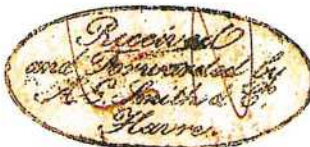 Received
and Forwarded by
A. E. Smith & Co.
Havre.